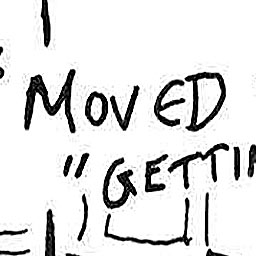 MOVED
"GETTI